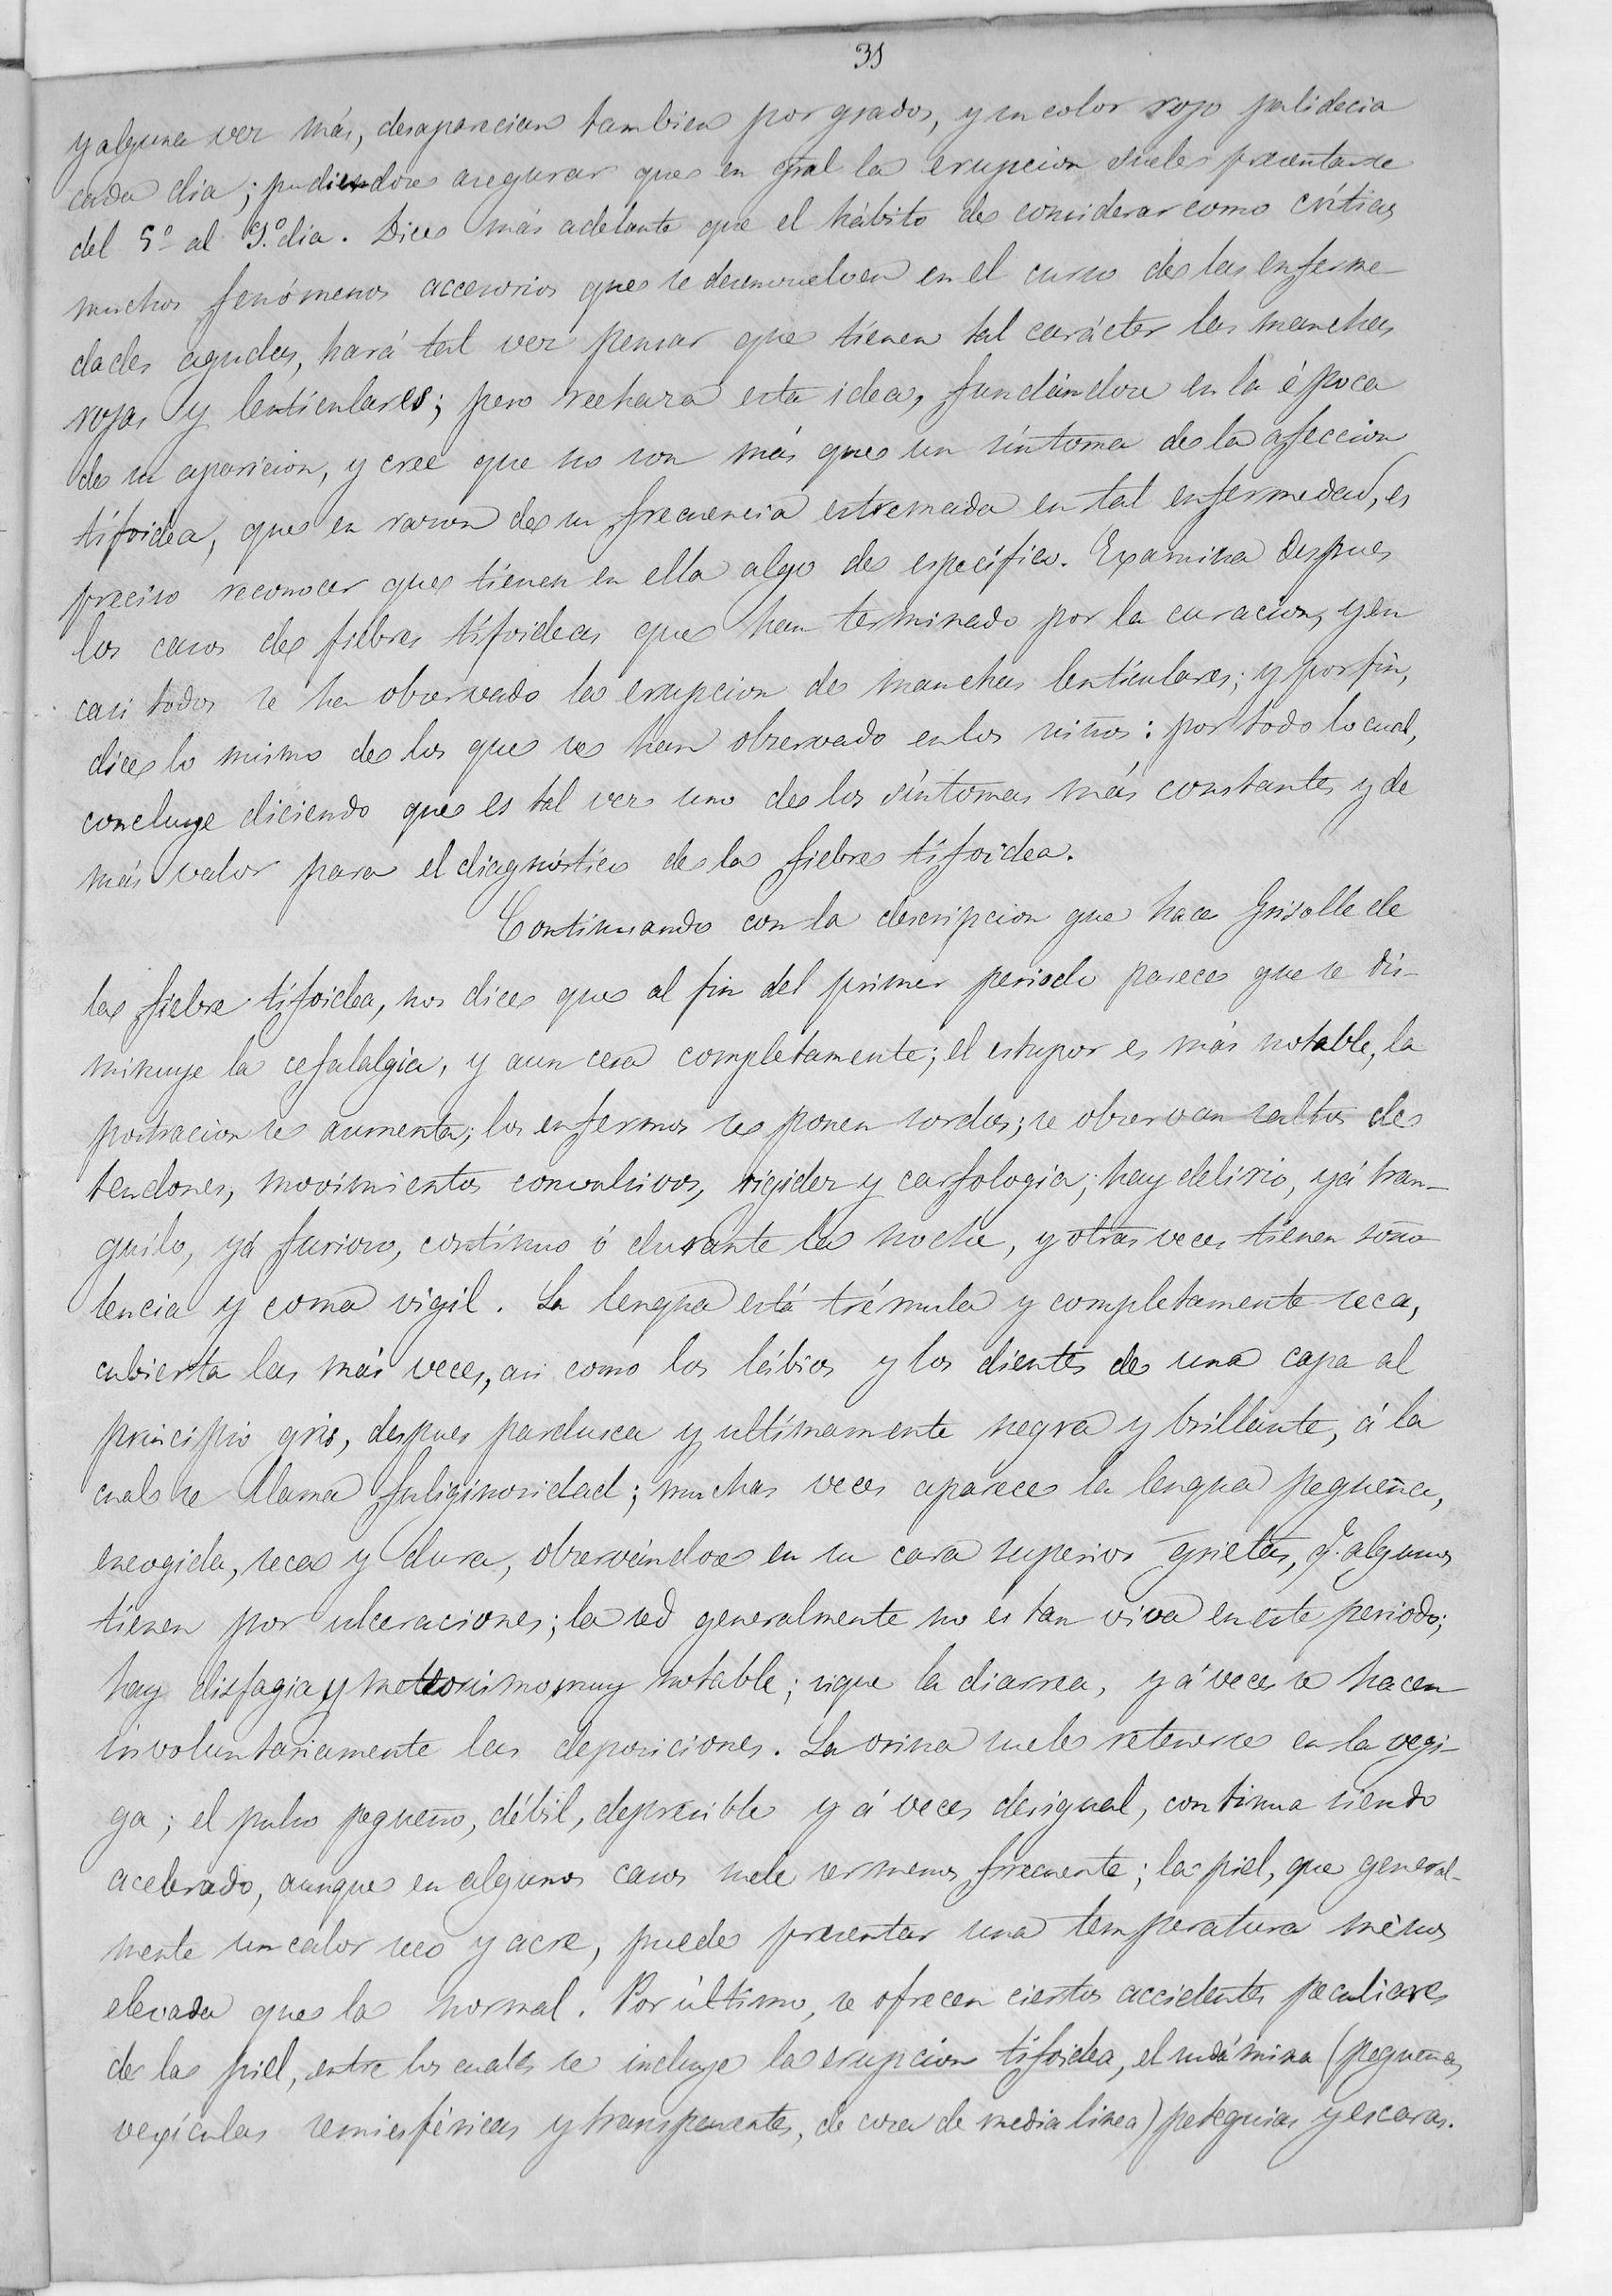 31
y alguna vez más, desaparecian tambien por grados, y su color rojo palidecia
cada dia; pudiendose asegurar que en gral la erupcion suele presentarse
del 5º al 9º dia. Dice más adelante que el hábito de considerar como críticos
muchos fenómenos accesorios que se desenvuelven en el curso de las enferme-
dades agudas, hará tal vez pensar que tienen tal carácter las manchas
rojas y lenticulares; pero rechaza esta idea, fundándose en la época
de su aparicion, y cree que no son más que un síntoma de la afeccion
tifoidea, que en razon de su frecuencia estremada en tal enfermedad, es
preciso reconocer que tienen en ella algo de específico. Examina despues
los casos de fiebres tifoideas que han terminado por la curacion, y en
casi todos se ha observado la erupcion de manchas lenticulares; y por fin,
dice lo mismo de los que se han observado en los niños: por todo lo cual,
concluye diciendo que es tal vez uno de los síntomas más constantes y de
más valor para el diagnóstico de la fiebre tifoidea.
Continuando con la descripcion que hace Grisolle de
la fiebre tifoidea, nos dice que al fin del primer periodo parece que se dis-
minuye la cefalalgia, y aun cesa completamente; el estupor es más notable, la
postracion se aumenta; los enfermos se ponen sordos; se observan saltos de
tendones, movimientos convulsivos, rigidez y carfologia; hay delirio, yá tran-
quilo, yá furioso, contínuo ó durante la noche, y otras veces tienen soño
lencia y coma vigil. La lengua está trémula y completamente seca,
cubierta las más veces, asi como los lábios y los dientes de una capa al
principio gris, despues pardusca y ultimamente negra y brillante, á la
cual se llama fuliginosidad; muchas veces aparece la lengua pequeña,
encogida, seca y dura, observándose en su cara superior grietas, q. algunos
tienen por ulceraciones; la sed generalmente no es tan viva en este periodo;
hay disfagia y meteorismo muy notable; sigue la diarrea, y á veces se hacen
involuntariamente las deposiciones. La orina suele retenerse en la vegi-
ga; el pulso pequeño, débil, depresible y á veces desigual, continua siendo
acelerado, aunque en algunos casos suele ser menos frecuente; la piel, que general-
mente un calor seco y acre, puede presentar una temperatura ménos
elevada que la normal. Por último, se ofrecen ciertos accidentes peculiares
de la piel, entre los cuales se incluye la erupcion tifoidea, el sudámina (pequeñas
vexículas semiesféricas y transparentes, de cosa de media linea) petequias y escaras.